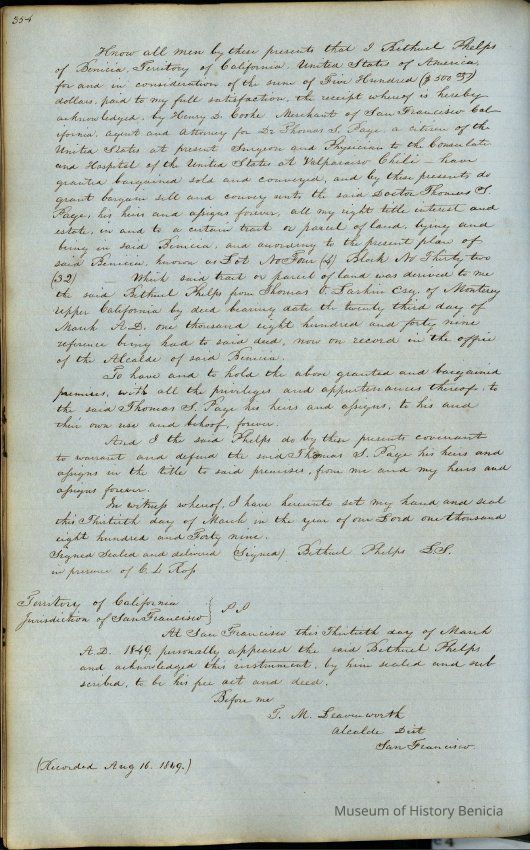 354
Know all men by these presents that I Bethuel Phelps
of Benicia, Territory of California United States of America,
for and in consideration of the sum of Five Hundred ($500
dollars, paid to my full satisfaction, the receipt whereof is hereby
acknowledged, by Henry D. Cooke Merchant of San Francisco Cal-
ifornia, agent and Attorney for Dr Thomas S. Page, a citizen of the
United States at present Surgeon and Physician to the Consulate,
and Hospital of the United States at Valparaiso Chili — have
granted bargained sold and conveyed, and by these presents do
grant bargain sell and convey unto the said Doctor Thomas S
Page, his heirs and assigns forever, all my right title interest and
estate, in and to a certain tract or parcel of land, lying and
being in said Benicia, and according to the present plan of
said Benicia, known as Lot No Four (4) Block No Thirty two
(32) Which said tract or parcel of land was derived to me
the said Bethuel Phelps from Thomas O. Larkin Esq. of Monterey
Upper California by deed bearing date the twenty third day of
March A.D. one thousand eight hundred and forty nine
reference being had to said deed, now on record in the office
of the Alcalde of said Benicia.
To have and to hold the above granted and bargained
premises, with all the privileges and appurtenances thereof, to
the said Thomas S. Page his heirs and assigns, to his and
their own use and behoof, forever.
And I the said Phelps do by these presents covenant
to warrant and defend the said Thomas S. Page his heirs and
assigns in the title to said premises, from me and my heirs and
assigns forever.
In witness whereof, I have hereunto set my hand and seal
this Thirtieth day of March in the year of our Lord one thousand
eight hundred and Forty nine.
Signed Sealed and delivered (Signed) Bethuel Phelps L.S.
in presence of C. L. Ross
Territory of California
Jurisdiction of San Francisco } S.S
At San Francisco this Thirtieth day of March
A.D. 1849, personally appeared the said Bethuel Phelps
and acknowledged this instrument, by him sealed and sub
scribed, to be his free act and deed.
Before me
T. M. Leavenworth
Alcalde Dist
San Francisco.
(Recorded Aug 16. 1849.)
Museum of History Benicia